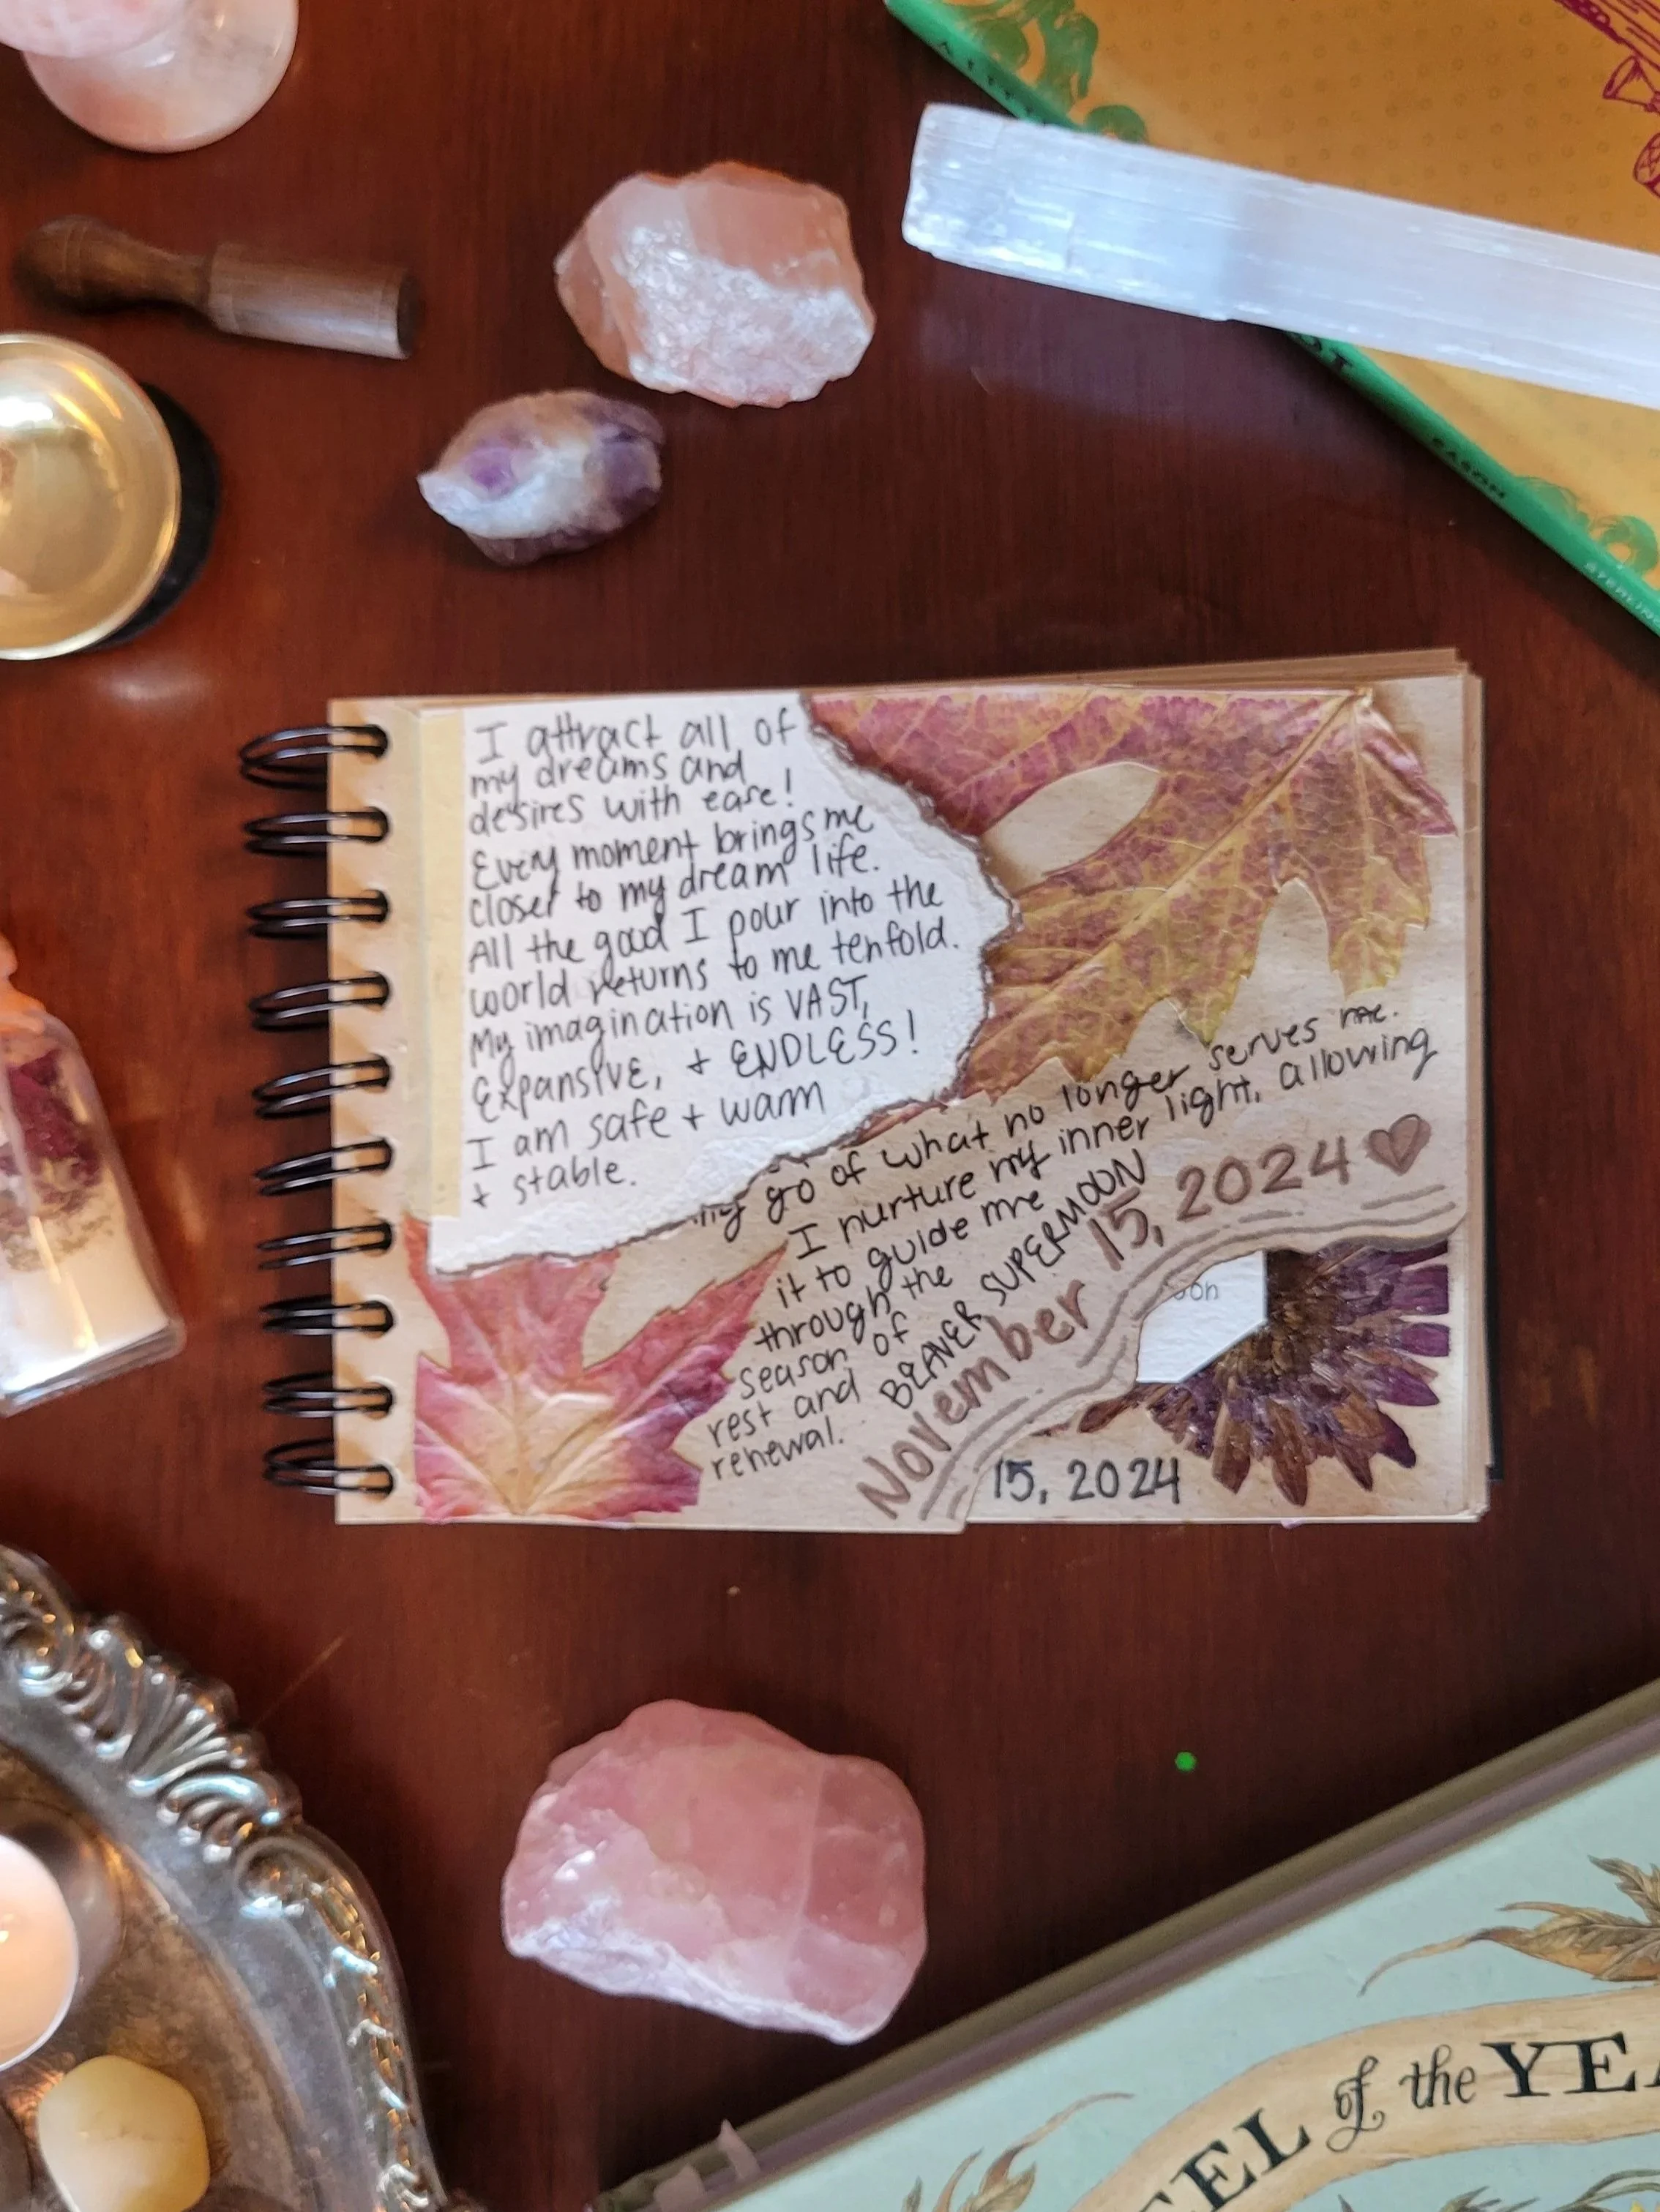 I attract all of
my dreams and
desires with ease!
Every moment brings me
closer to my dream life.
All the good I pour into the
world returns to me tenfold.
My imagination is VAST,
Expansive, + ENDLESS!
I am safe + warm
+ stable.
go of what no longer serves me.
I nurture my inner light, allowing
it to guide me
through the
season of
rest and
renewal.
BEAVER SUPERMOON
November 15, 2024
oon
15, 2024
EASON
STERLING
of the YEA